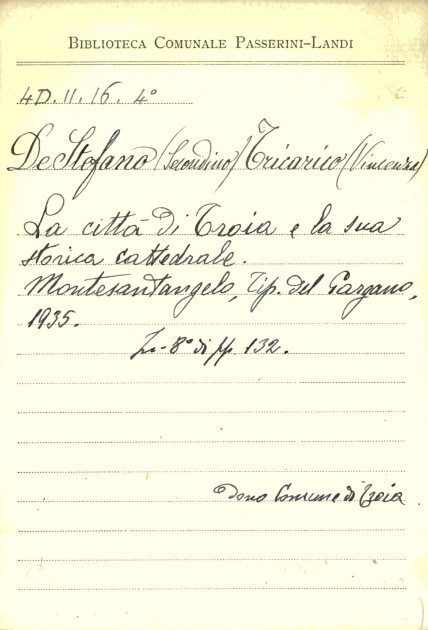 BIBLIOTECA COMUNALE PASSERINI-LANDI
4D. II. 16. 4º
De Stefano (Secondino) Tricarico (Vincenzo)
La città di Troia e la sua
storica cattedrale.
Montesantangelo, Tip. del Gargano,
1935.
In-8º di pp 132.
Dono Comune di Troia